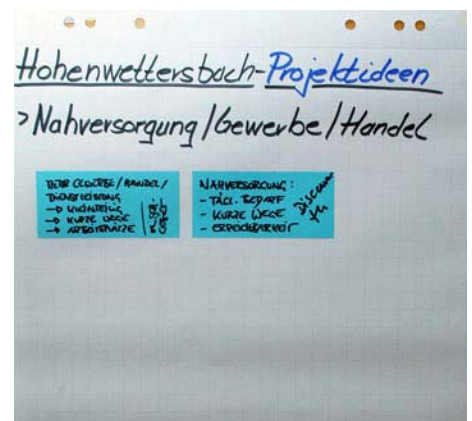 Hohenwettersbach-Projektideen
>Nahversorgung/Gewerbe/Handel
GEWERBE/HANDEL/
DIENSTLEISTUNG
→ KURZE WEGE
→ ARBEITSPLÄTZE
NAHVERSORGUNG:
- TÄGL. BEDARF
- KURZE WEGE
- ERREICHBARKEIT